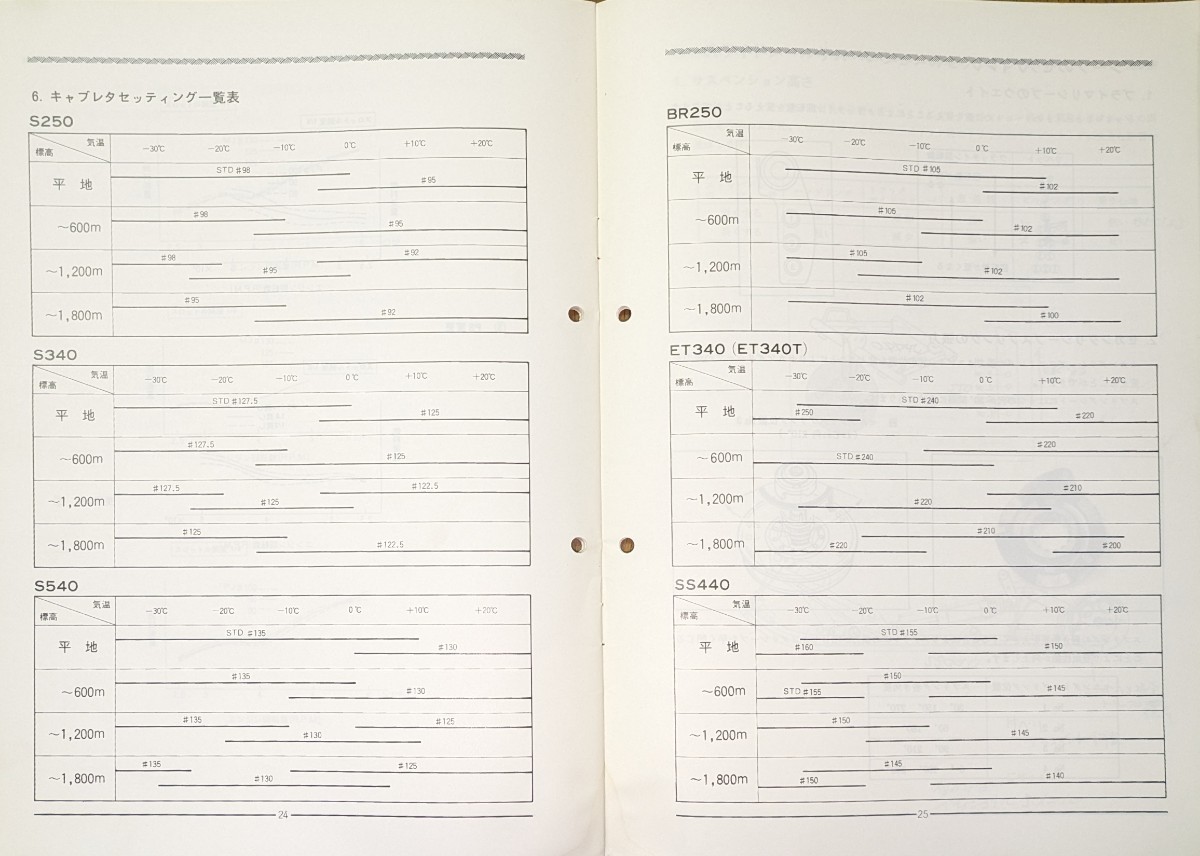 6. キャブレタセッティング一覧表
S250
気温
標高
−30℃ −20℃ −10℃ 0℃ +10℃ +20℃
平 地
STD #98
#95
～600m
#98
#95
～1,200m
#98
#95
#92
～1,800m
#95
#92
S340
気温
標高
−30℃ −20℃ −10℃ 0℃ +10℃ +20℃
平 地
STD #127.5
#125
～600m
#127.5
#125
～1,200m
#127.5
#125
#122.5
～1,800m
#125
#122.5
S540
気温
標高
−30℃ −20℃ −10℃ 0℃ +10℃ +20℃
平 地
STD #135
#130
～600m
#135
#130
～1,200m
#135
#130
#125
～1,800m
#135
#130
#125
24
BR250
気温
標高
−30℃ −20℃ −10℃ 0℃ +10℃ +20℃
平 地
STD #105
#102
～600m
#105
#102
～1,200m
#105
#102
～1,800m
#102
#100
ET340 (ET340T)
気温
標高
−30℃ −20℃ −10℃ 0℃ +10℃ +20℃
平 地
STD #240
#250
#220
～600m
#220
STD #240
～1,200m
#210
#220
～1,800m
#210
#220
#200
SS440
気温
標高
−30℃ −20℃ −10℃ 0℃ +10℃ +20℃
平 地
STD #155
#160
#150
～600m
#150
STD #155
#145
～1,200m
#150
#145
～1,800m
#145
#150
#140
25